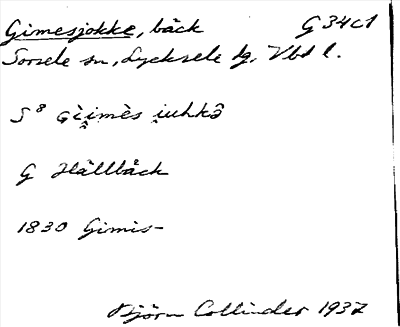 Gimesjokke, bäck G 34c1
Sorsele sn, Lycksele tg, Vbd l.
S⁸ Gi̭imès i̭uhkô
G Hällbäck
1830 Gimis-
Björn Collinder 1937